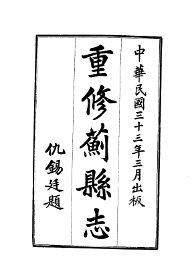 中華民國三十三年三月出版
重修薊縣志
仇錫廷題